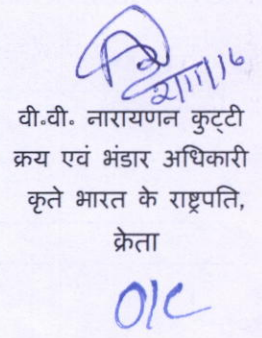 2/11/16
वी॰वी॰ नारायणन कुट्टी
क्रय एवं भंडार अधिकारी
कृते भारत के राष्ट्रपति,
क्रेता
O/C